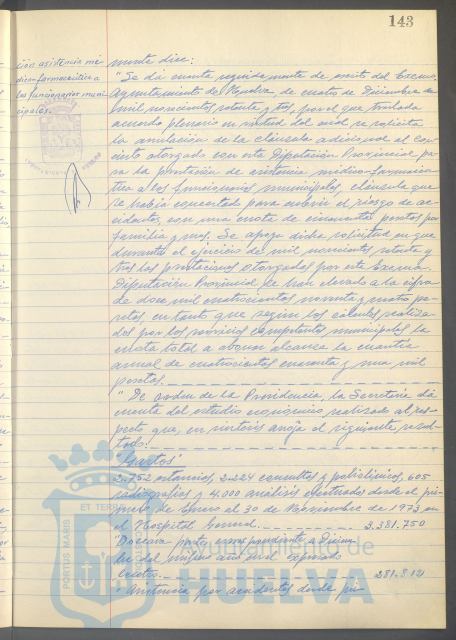 143
ción asistencia mé-
dico-farmaceútica a
los funcionarios muni-
cipales.
mente dice:
"Se dá cuenta seguidamente de escrito del Excmo.
Ayuntamiento de Huelva, de cuatro de Diciembre de
mil novecientos setenta y tres, por el que traslada
acuerdo plenario en virtud del cual se solicita
la anulación de la cláusula adicional al Con-
cierto otorgado con esta Diputación Provincial pa-
ra la prestación de asistencia médico-farmaceú-
tica a los funcionarios municipales, cláusula que
se había concertado para cubrir el riesgo de ac-
cidentes, con una cuota de cincuenta pesetas por
familia y mes. Se apoya dicha solicitud en que
durante el ejercicio de mil novecientos setenta y
tres las prestaciones otorgadas por esta Excma.
Diputación Provincial se han elevado a la cifra
de doce mil cuatrocientas noventa y cuatro pe-
setas en tanto que según los cálculos realiza-
dos por los servicios competentes municipales, la
cuota total a abonar alcanza la cuantía
anual de cuatrocientas cincuenta y una mil
pesetas.
"De orden de la Presidencia, la Secretaría dá
cuenta del estudio económico realizado al res-
pecto que, en síntesis arroja el siguiente resul-
tado:
"Gastos"
2.752 estancias, 2.224 consultas y policlínicas, 605
radiografías y 4.000 análisis efectuados desde el pri-
mero de Enero al 30 de Noviembre de 1973 en
el Hospital General. 3.381.750
"Doceava parte, correspondiente a Diciem-
bre del mismo año en el expresado
Centro. 281.812
"Asistencia por accidentes desde pri-
PORTUS MARIS ET TERRAE
Ayuntamiento de
HUELVA